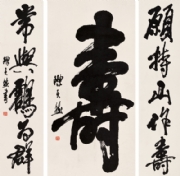 願持山作壽
壽
常與鶴為群